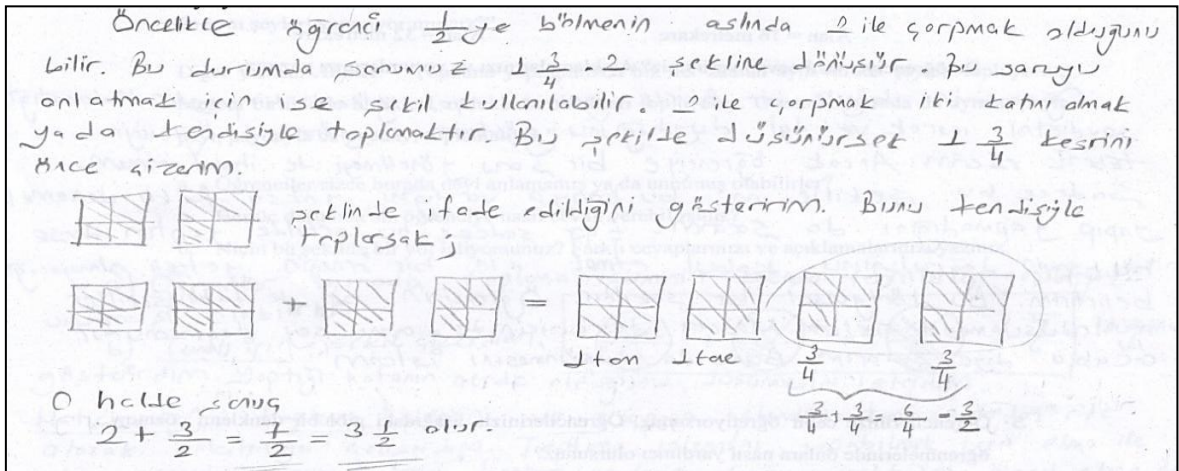 Öncelikle öğrenci 1/2 ye bölmenin aslında 2 ile çarpmak olduğunu
bilir. Bu durumda sorumuz 1 3/4 . 2 şekline dönüşür. Bu soruyu
anlatmak için ise şekil kullanılabilir. 2 ile çarpmak iki katını almak
ya da kendisiyle toplamaktır. Bu şekilde düşünürsek 1 3/4 kesrini
önce çizerim.
şeklinde ifade edildiğini gösteririm. Bunu kendisiyle
toplarsak;
+ =
1 tam 1 tam 3/4 3/4
3/4 + 3/4 = 6/4 = 3/2
O halde sonuç
2 + 3/2 = 7/2 = 3 1/2 olur.